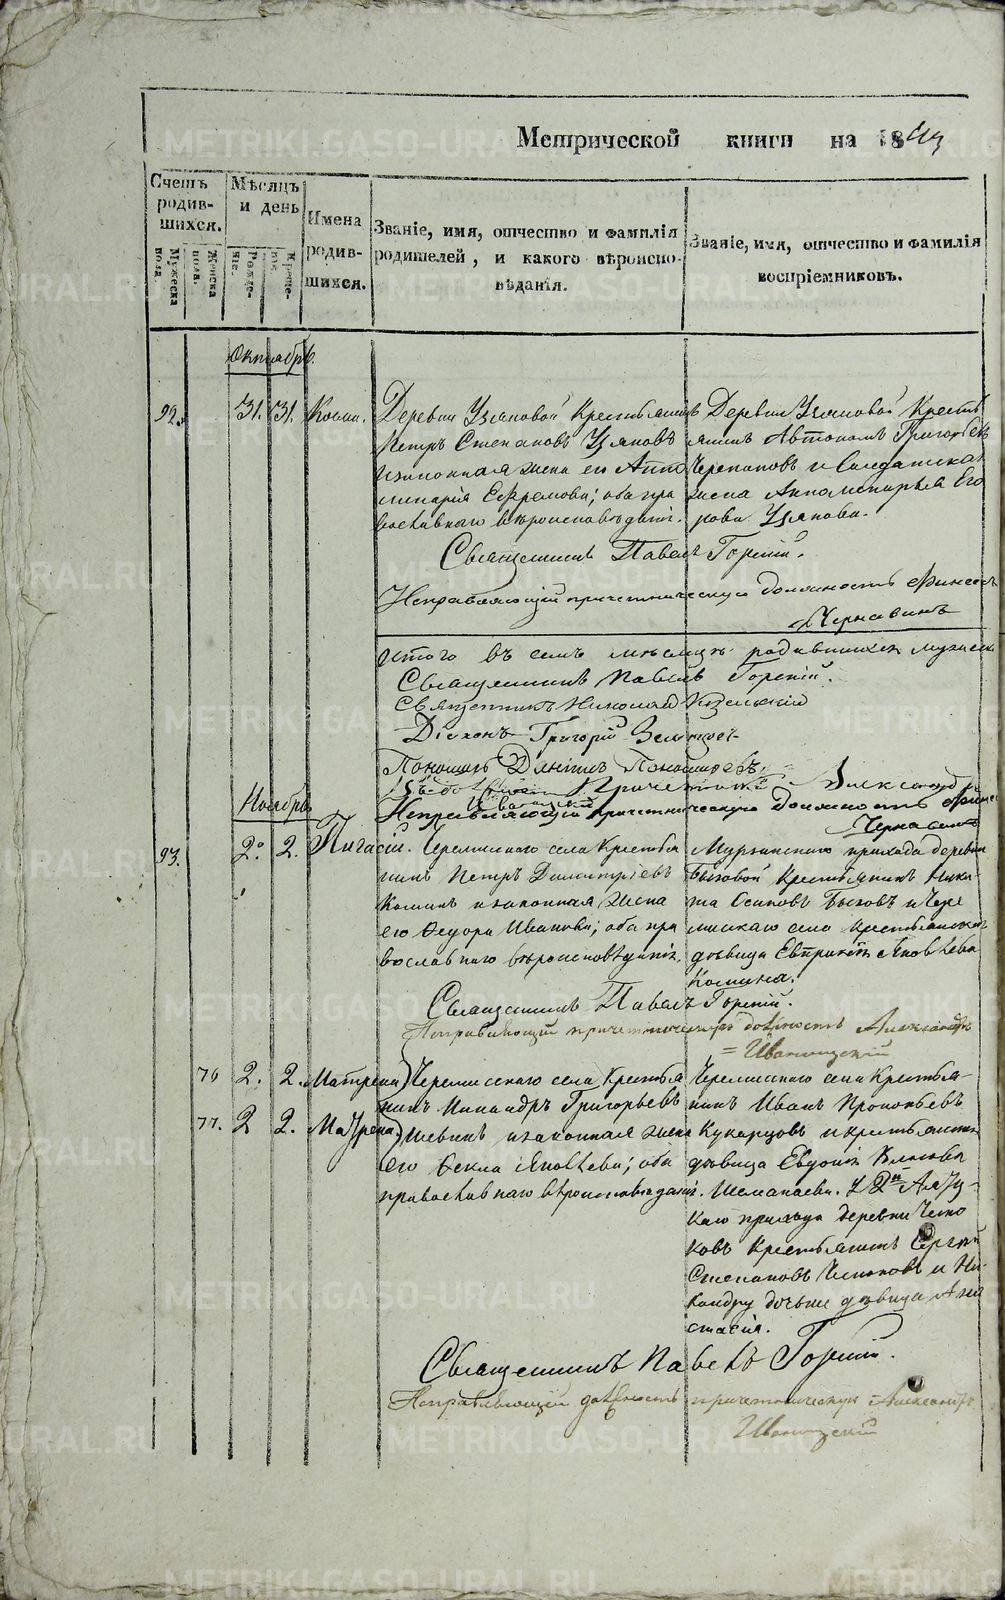 Метрической книги на 1843
Счетъ родив- шихся.
Мужеска пола.
Женска пола.
Мѣсяцъ и день
Рожде- нія.
Креще- нія.
Имена родив- шихся.
Званіе, имя, отчество и фамилія
родителей, и какого вѣроиспо-
вѣданія.
Званіе, имя, отчество и фамилія
воспріемниковъ.
Октябрь.
92. 31. 31. Косма.
Деревни Узяновой Крестьянинъ
Петръ Степановъ Узяновъ
и законная жена его Аппо
линарія Ефремова; оба пра
вославнаго вѣроисповѣданія.
Деревни Узяновой Кресть
янинъ Автономъ Григорьевъ
Черепановъ и Солдатская
жена Апполинарія Его
рова Узянова.
Священникъ Павелъ Горскій.
Исправляющій причетническую должность
Чернавинъ
Итого въ семъ мѣсяцѣ родившихся мужеска
Священникъ Павелъ Горскій.
Священникъ Николай
Діаконъ Григорій
Пономарь
Александръ
Исправляющій причетническую должность
Чернавинъ
Ноябрь
93. 2. 2. Пигасій.
Черемисскаго села Крестья
нинъ Петръ Димитріевъ
Коминъ и законная жена
его Ѳедора Иванова; оба пра
вославнаго вѣроисповѣданія.
Мурзинскаго прихода деревни
Бызовой Крестьянинъ Ники
та Осиповъ Бызовъ и Чере
мисскаго села Крестьянская
дѣвица Евпраксія Яковлева
Комина.
Священникъ Павелъ Горскій.
Исправляющій причетническую должность Александръ
Иваницкій
76 2. 2. Матрена
77. 2 2. Матрена
Черемисскаго села Крестья
нинъ Никандръ Григорьевъ
и законная жена
его Ѳекла Яковлева; оба
православнаго вѣроисповѣданія.
Черемисскаго села Крестья-
нинъ Иванъ Прокопьевъ
Кукарцовъ и крестьянская
дѣвица Евдокія
Шаманаева. У 2й
каго прихода деревни
ковъ Крестьянинъ Сергій
Степановъ и Ни-
кандру дочь дѣвица Ана
стасія.
Священникъ Павелъ Горскій.
Исправляющій должность причетническую Александръ
Иваницкій
METRIKI.GASO-URAL.RU